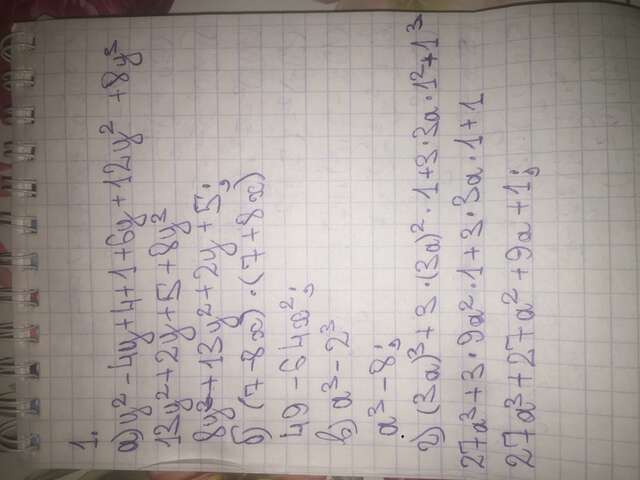 1.
а) y² - 4y + 4 + 1 + 6y + 12y² + 8y³
13y² + 2y + 5 + 8y³
8y³ + 13y² + 2y + 5;
б) (7 - 8x) · (7 + 8x)
49 - 64x²;
в) a³ - 2³
a³ - 8;
г) (3a)³ + 3 · (3a)² · 1 + 3 · 3a · 1² + 1³
27a³ + 3 · 9a² · 1 + 3 · 3a · 1 + 1
27a³ + 27a² + 9a + 1;